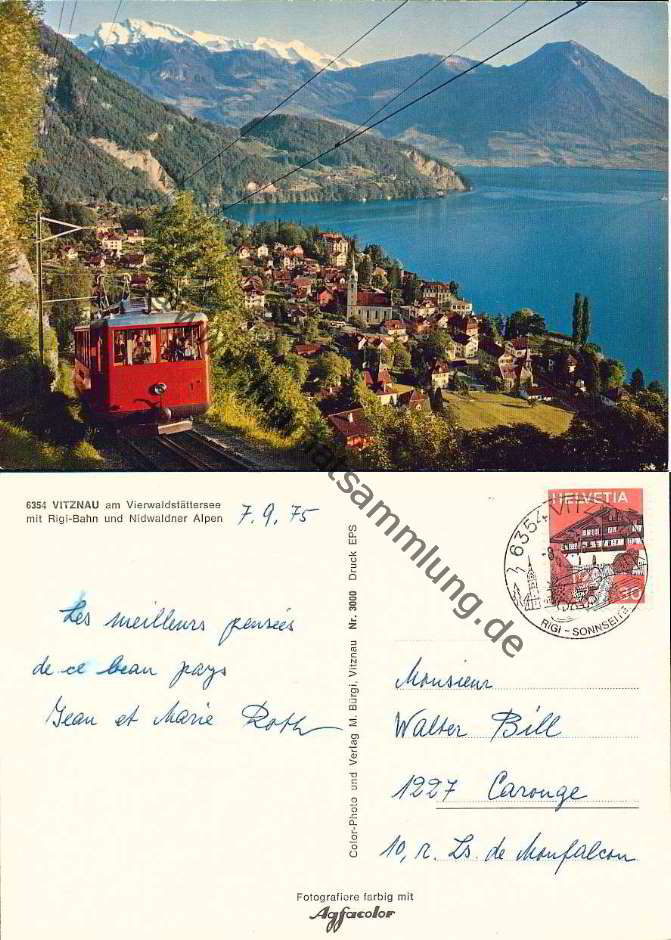 6354 VITZNAU am Vierwaldstättersee
mit Rigi-Bahn und Nidwaldner Alpen
7.9.75
Les meilleurs pensées
de ce beau pays
Jean et Marie Roth
Color-Photo und Verlag M. Bürgi, Vitznau Nr. 3000 Druck EPS
HELVETIA
30
6354 VITZNAU
-8.
RIGI-SONNSEITE
Monsieur
Walter Bill
1227 Carouge
10, r. Ls. de Monfalcon
Fotografiere farbig mit
Agfacolor
matsammlung.de